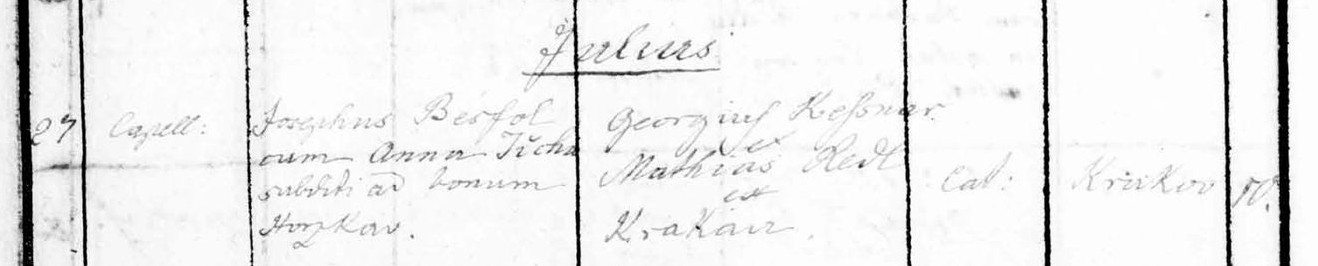 Julius
27 Capell: Josephus Besfol Georgius Kessnar
cum Anna Ticha et
subditi ad bonum Mathias Redl Cat: Krakov 10.
Horzkau. ex
Krakau.